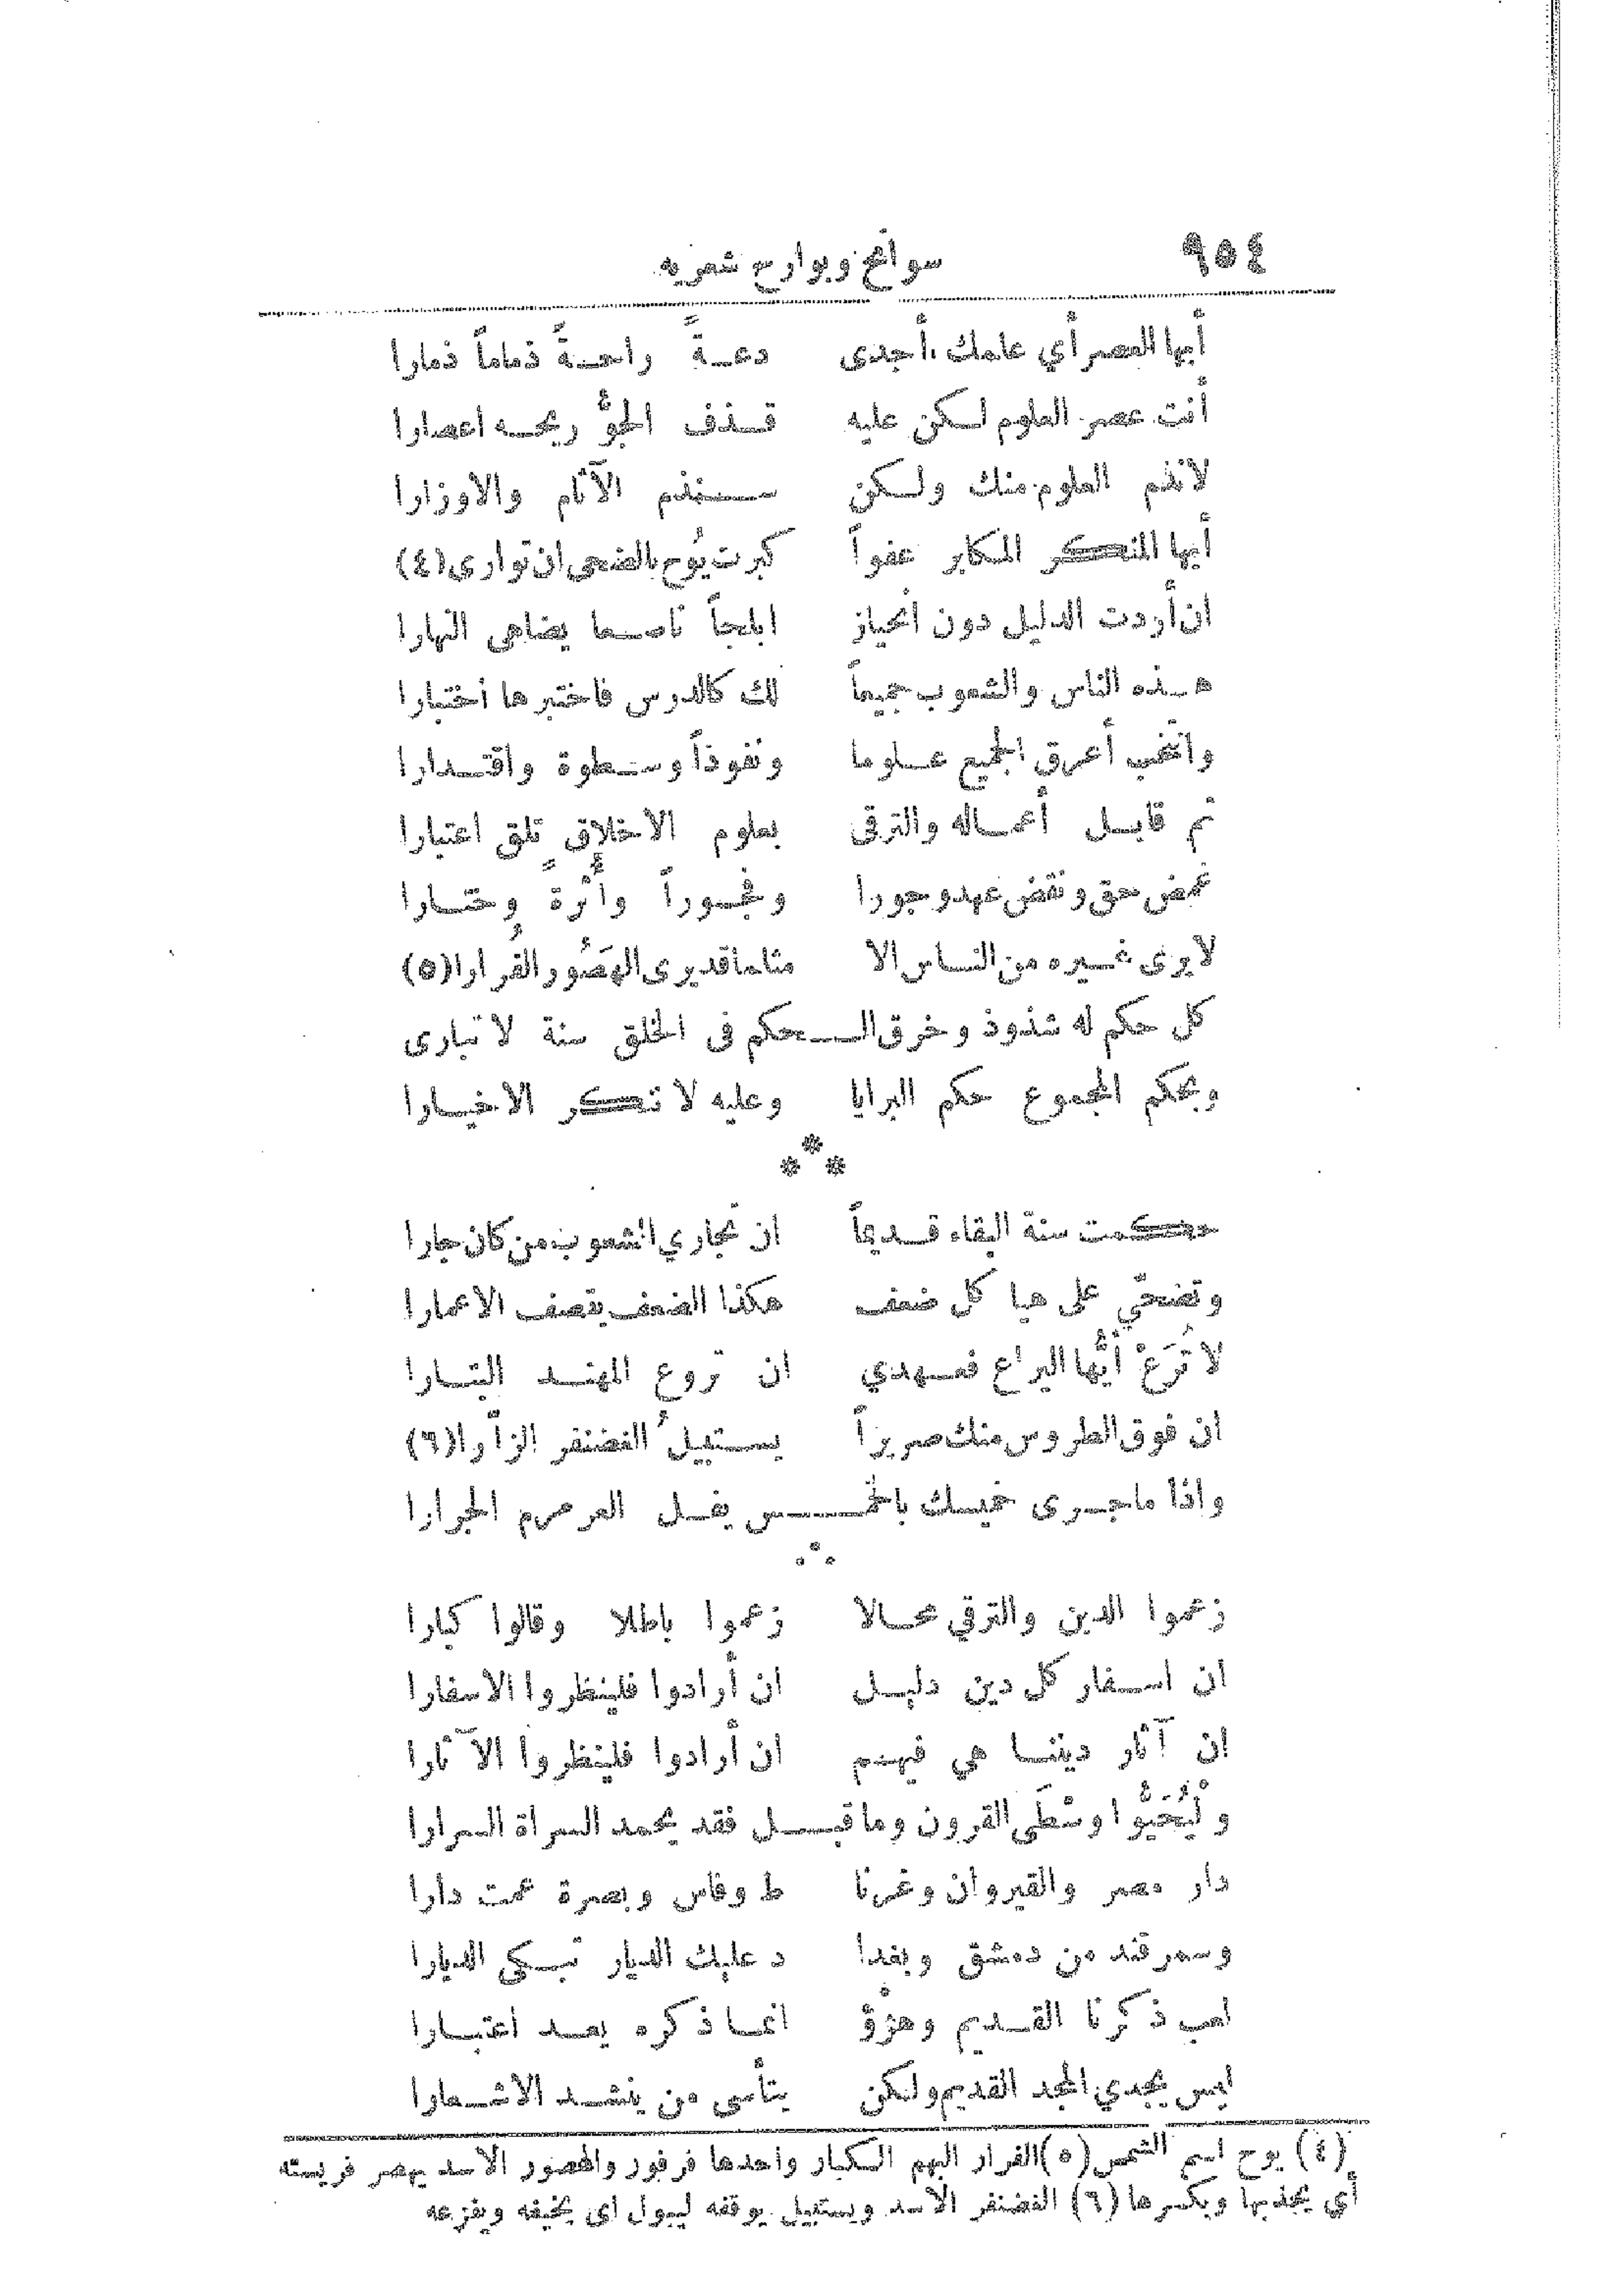 ٩٥٤ سوانح وبوارح شعريه
أيها العصر أي علمك أجدى دعــةً راحــةً ذماماً ذمارا
أنت عصر العلوم لكن عليه قــذف الجوُّ ريحــه اعصارا
لا نذم العلوم منك ولكن ســنذم الآثام والاوزارا
أيها المنكر المكابر عفواً كبرت يُوح بالضحى ان توارى (٤)
ان أردت الدليل دون انحياز ابلجاً ناصــعا يضاهى النهارا
هــذه الناس والشعوب جميعاً لك كالدرس فاختبرها اختبارا
وانتخب أعرق الجميع علــوما ونفوذاً وســطوة واقتــدارا
ثم قابــل أعمــاله والترقى بعلوم الاخلاق تلق اعتبارا
غمض حق ونقض عهد وجورا وفجــوراً وأثرةً وختــارا
لا يرى غــيره من النــاس الا مثلما قد يرى الهَصُور الفُرارا (٥)
كل حكم له شذوذ وخرق الــحكم فى الخلق سنة لا تبارى
وبحكم المجموع حكم البرايا وعليه لا تنكر الاخيــارا
***
حكمت سنة البقاء قــديماً ان تجاري الشعوب من كان جارا
وتضحّي على هبا كل ضعف هكذا الضعف يقصف الاعمارا
لا تُرَعْ أيُّها اليراع فعــهدي ان تروع المهنــد البتــارا
ان فوق الطروس منك صريراً يســتبيلُ الغضنفر الزأرا (٦)
واذا ما جــرى خميسك بالخمــس يفــل العرمرم الجرارا
∴
زعموا الدين والترقي محــالا زعموا باطلا وقالوا كبارا
ان اســفار كل دين دليــل ان أرادوا فلينظروا الاسفارا
ان آثار ديننــا هي فيهــم ان أرادوا فلينظروا الآثارا
ولْيُحَيُّوا وسْطَى القرون وما قبــل فقد يحمد السراة السرارا
دار مصر والقيروان وغرنا ط وفاس وبصرة عمت دارا
وسمرقند من دمشق وبغدا د عليك الديار تبــكى الديارا
لعب ذكرنا القــديم وهزْؤ انمــا ذكره يعــد اعتبــارا
ليس يجدي المجد القديم ولكن يتأسى من ينشــد الاشــعارا
(٤) يوح اسم الشمس (٥) الفرار البهم الكبار واحدها فرفور والهصور الاسد يهصر فريسته
أي يجذبها ويكسرها (٦) الغضنفر الاسد ويستبيل يوقفه ليبول اى يخيفه ويفزعه